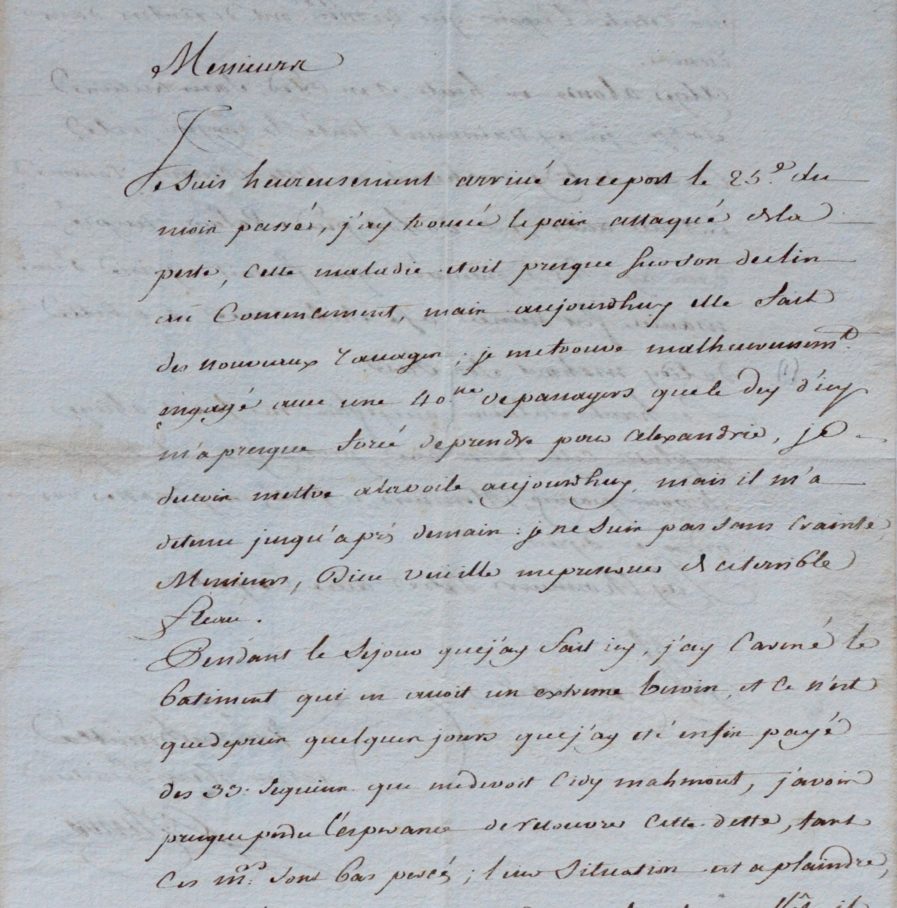 Messieurs
Je suis heureusement arrivé en ce port le 25.e du
mois passés, j'ay trouvé le pais attaqué de la
peste, cette maladie etoit presque sur son declin
au Commencement, mais aujourdhuy elle fait
des nouveaux ravages; je me trouve malheureusemt.
engagé avec une 40.ne de passagers que le Dey d'icy
m'a presque forcé de prendre pour Alexandrie, je
devois mettre a la voile aujourdhuy, mais il m'a
detenu jusqu'après demain: je ne suis pas sans crainte
Messieurs, Dieu veuille me preserver de ce terrible
fleau.
Pendant le Sejour que j'ay fait icy, j'ay Carené le
Batiment qui en avoit un extreme besoin, et Ce n'est
que depuis quelques jours que j'ay eté enfin payé
des 33. Sequins que me devoit Cidy mahmout, j'avois
presque perdu l'esperance de recouvrer cette dette, tant
Ces mrs. sont bas percés; leur situation est a plaindre,